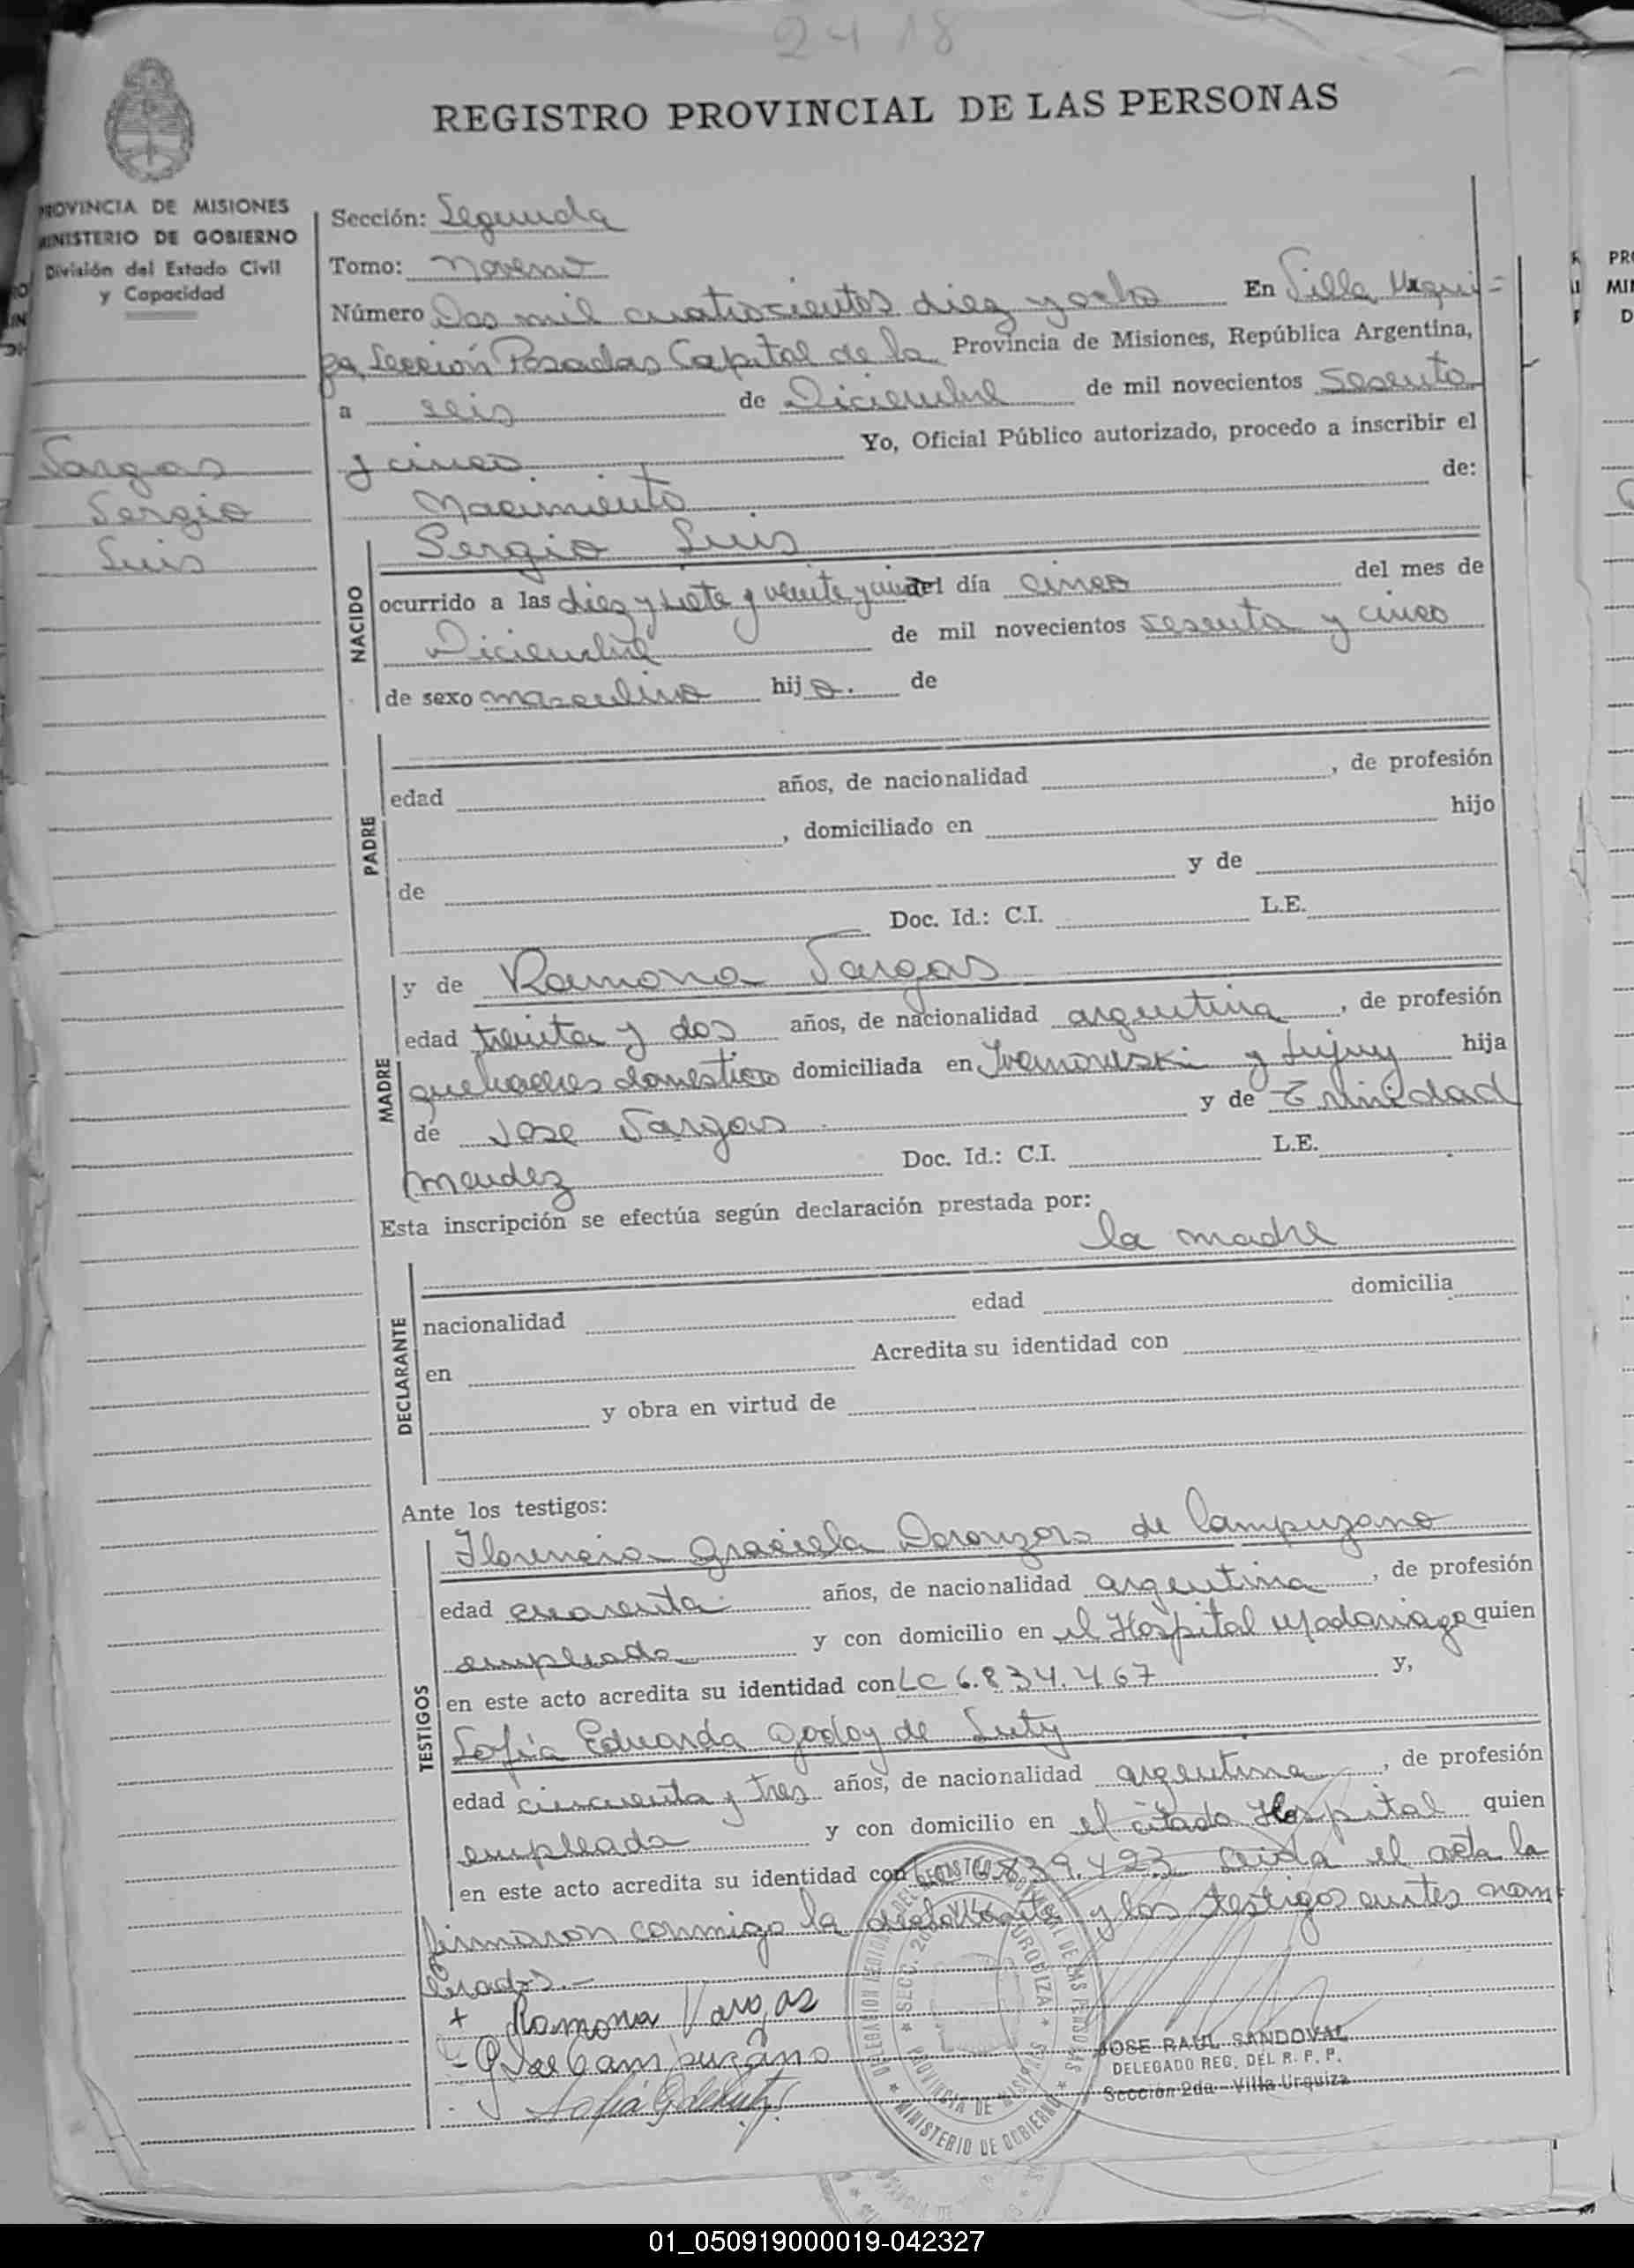 2418
REGISTRO PROVINCIAL DE LAS PERSONAS
PROVINCIA DE MISIONES
MINISTERIO DE GOBIERNO
División del Estado Civil
y Capacidad
Vargas
Sergio
Luis
Sección: Segunda
Tomo: Noveno
Número Dos mil cuatrocientos diez y ocho En Villa Urqui=
za, Sección Posadas Capital de la Provincia de Misiones, República Argentina,
a seis de Diciembre de mil novecientos sesenta
y cinco Yo, Oficial Público autorizado, procedo a inscribir el
Nacimiento de:
NACIDO
Sergio Luis
ocurrido a las diez y siete y veinte y del día cinco del mes de
Diciembre de mil novecientos sesenta y cinco
de sexo masculino hijo. de
PADRE
edad años, de nacionalidad , de profesión
, domiciliado en hijo
de y de
Doc. Id.: C.I. L.E.
MADRE
y de Ramona Vargas
edad treinta y dos años, de nacionalidad argentina, de profesión
quehaceres domestico domiciliada en Ivanowski y Jujuy hija
de Jose Vargas y de Trinidad
Mendez Doc. Id.: C.I. L.E.
Esta inscripción se efectúa según declaración prestada por:
la madre
DECLARANTE
nacionalidad edad domicilia
en Acredita su identidad con
y obra en virtud de
Ante los testigos:
TESTIGOS
Florencia Graciela de Campuzano
edad cuarenta años, de nacionalidad argentina, de profesión
empleada y con domicilio en el Hospital Madariaga quien
en este acto acredita su identidad con LC 6.834.467 y,
Sofía Eduarda Godoy de Luty
edad cincuenta y tres años, de nacionalidad argentina, de profesión
empleada y con domicilio en el citado Hospital quien
en este acto acredita su identidad con 6.839.423 Leida el acta la
firmaron conmigo la declarante y los testigos antes nom
brados.-
+ Ramona Vargas
Campuzano
Sofia G de Luty
JOSE RAUL SANDOVAL
DELEGADO REG. DEL R. P. P.
Sección 2da - Villa Urquiza
MINISTERIO DE GOBIERNO
PROVINCIA DE MISIONES
01_050919000019-042327